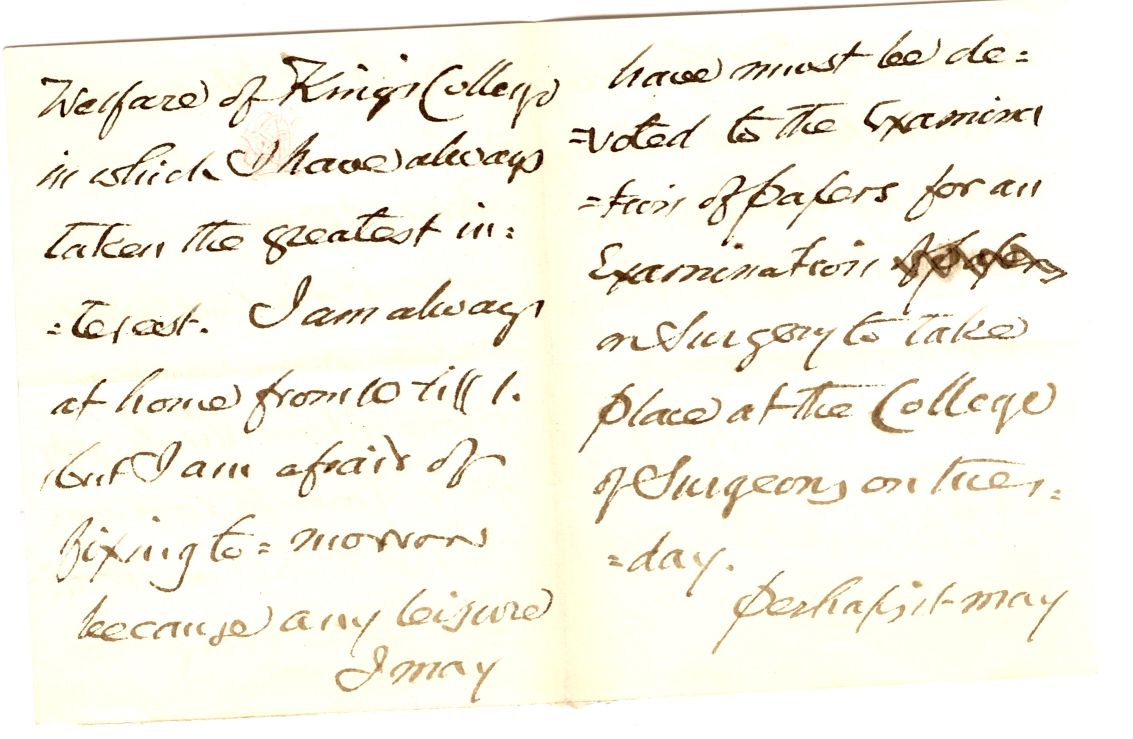 Welfare of King's College
in which I have always
taken the greatest in:
:terest. I am always
at home from 10 till 1.
but I am afraid of
fixing to = morrow
because any leisure
I may
have must be de=
=voted to the Examina
=tion of papers for an
Examination of papers
on Surgery to take
place at the College
of Surgeons on Tues:
=day.
Perhaps it may